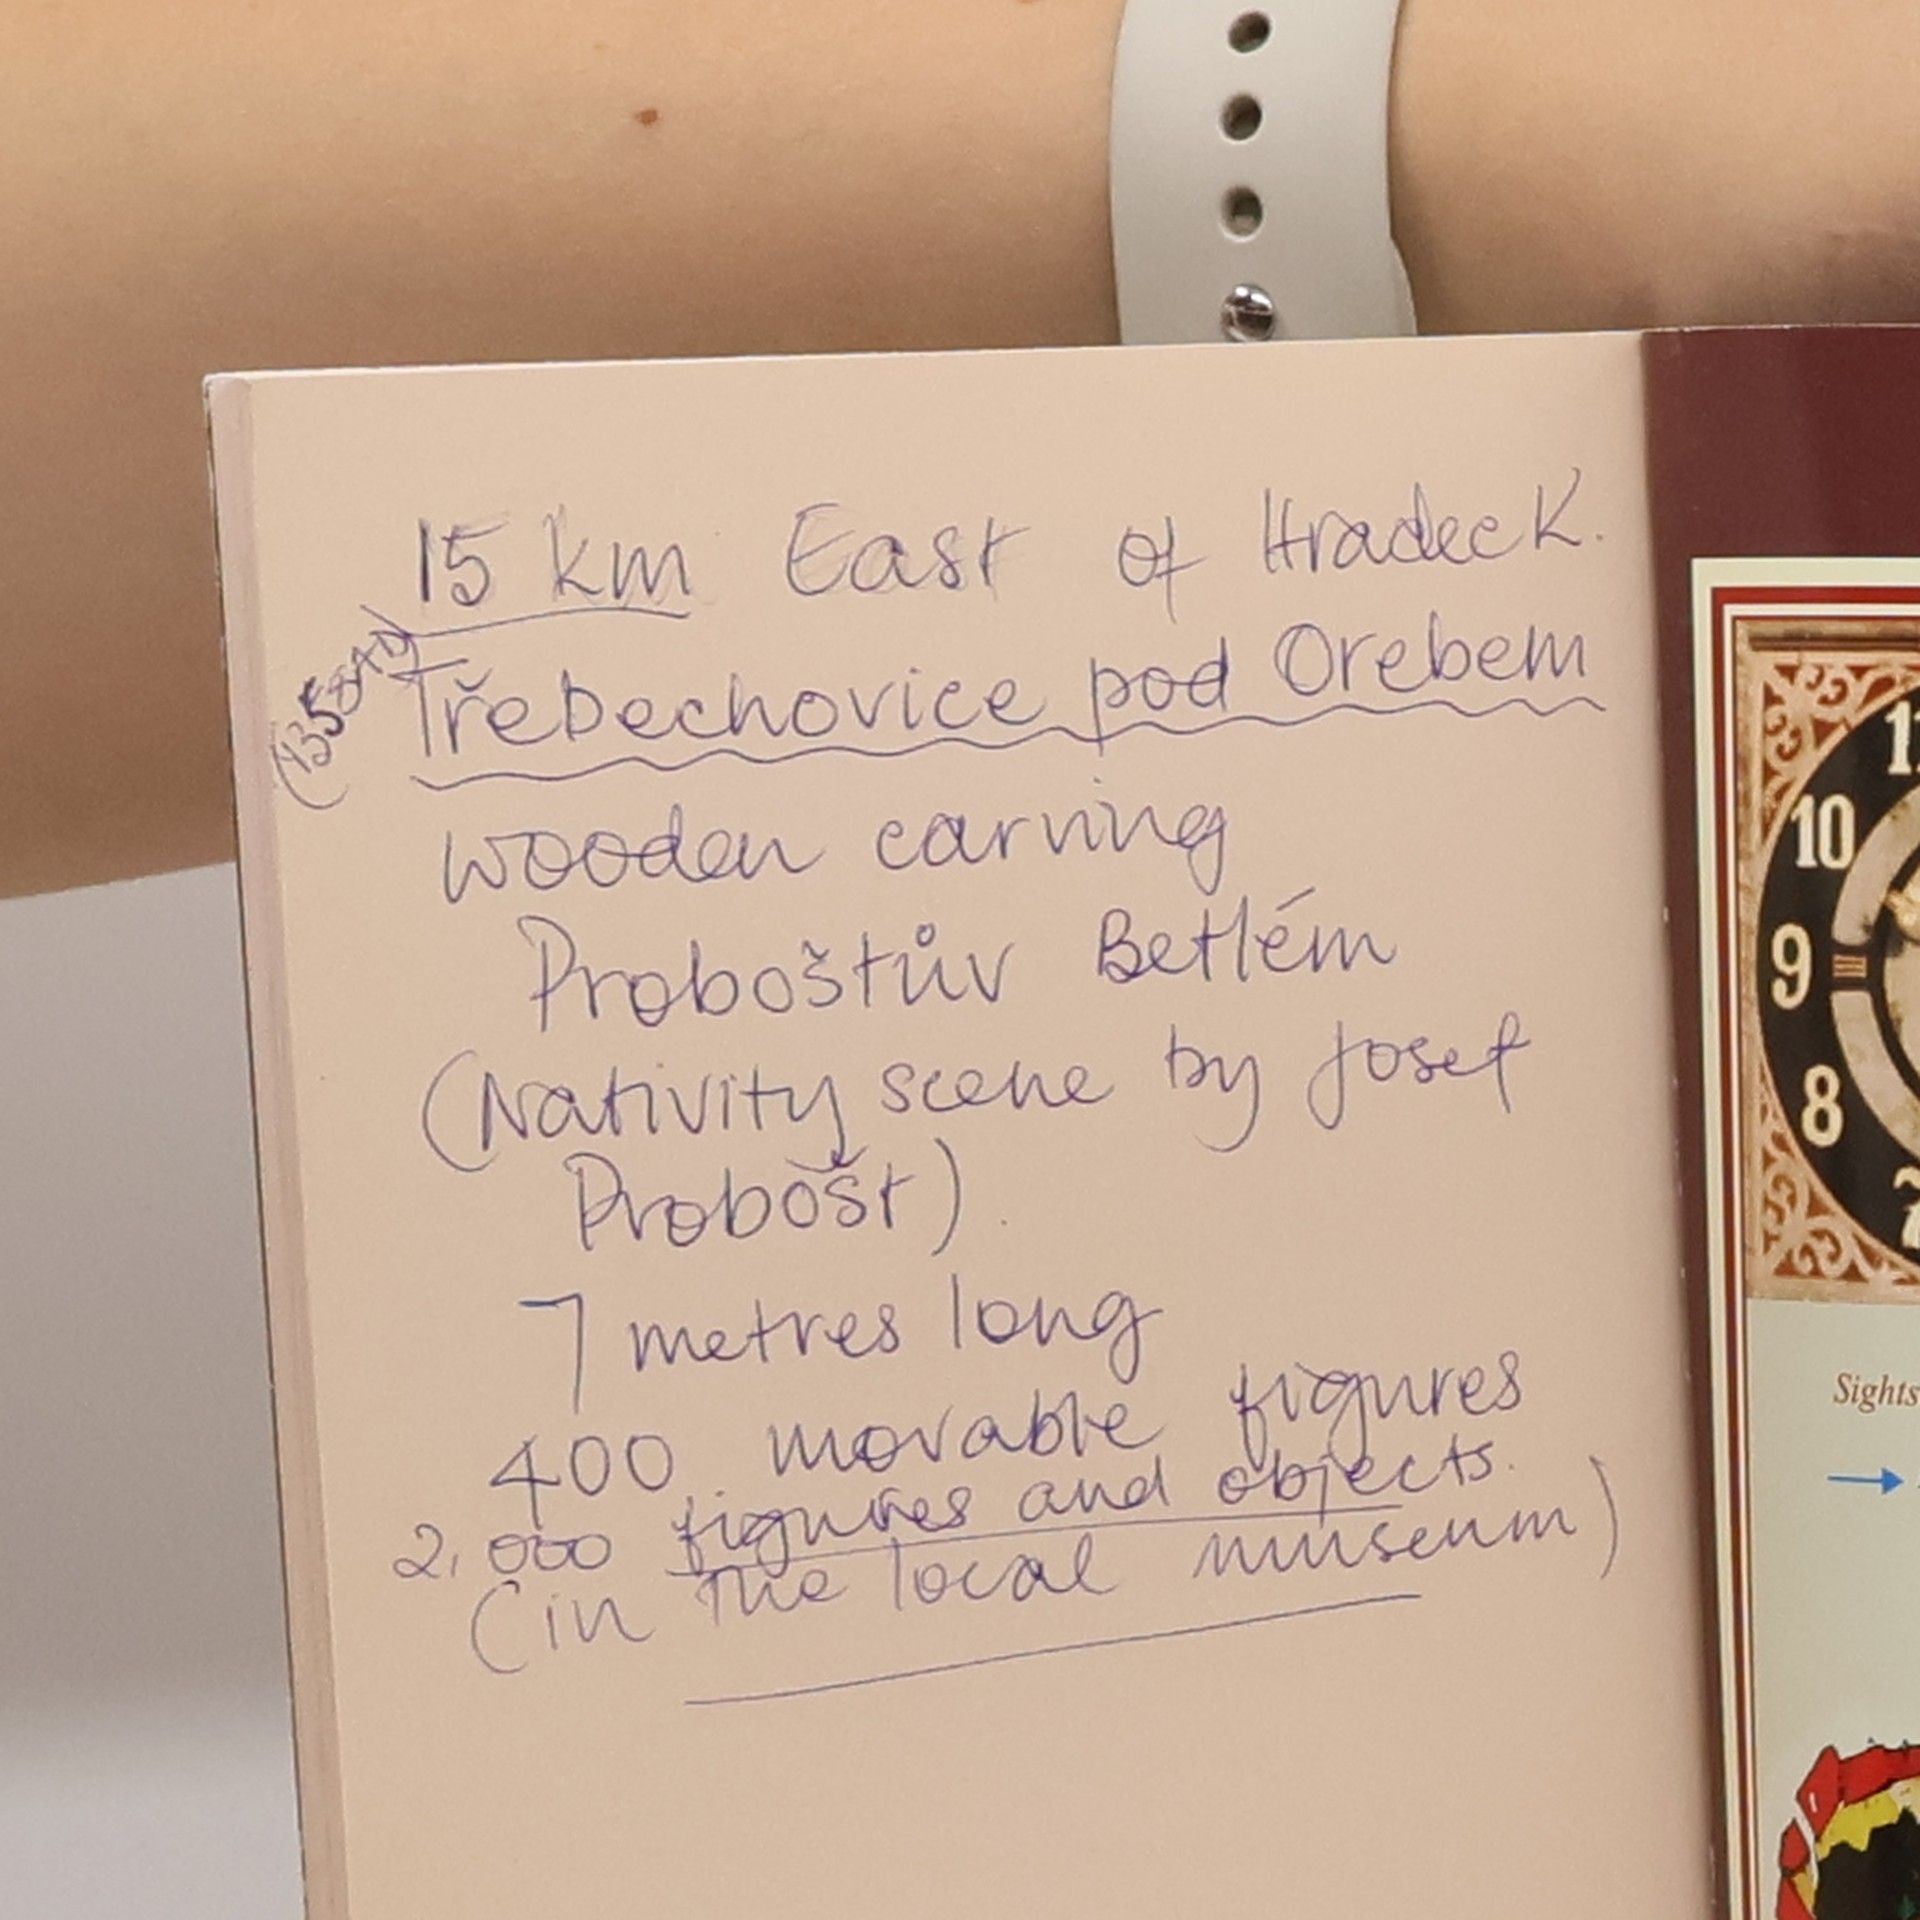 15 km East of Hradec K.
(1358 AD)
Třebechovice pod Orebem
wooden carving
Proboštův Betlém
(Nativity scene by Josef
Probošt).
7 metres long
400 movable figures
2,000 figures and objects.
(in the local museum)
11
10
9
8
7
Sights